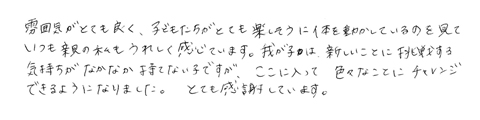 雰囲気がとても良く、子どもたちがとても楽しそうに体を動かしているのを見て
いつも親の私もうれしく感じています。我が子は、新しいことに挑戦する
気持ちがなかなか持てない子ですが、ここに入って 色々なことにチャレンジ
できるようになりました。 とても感謝しています。